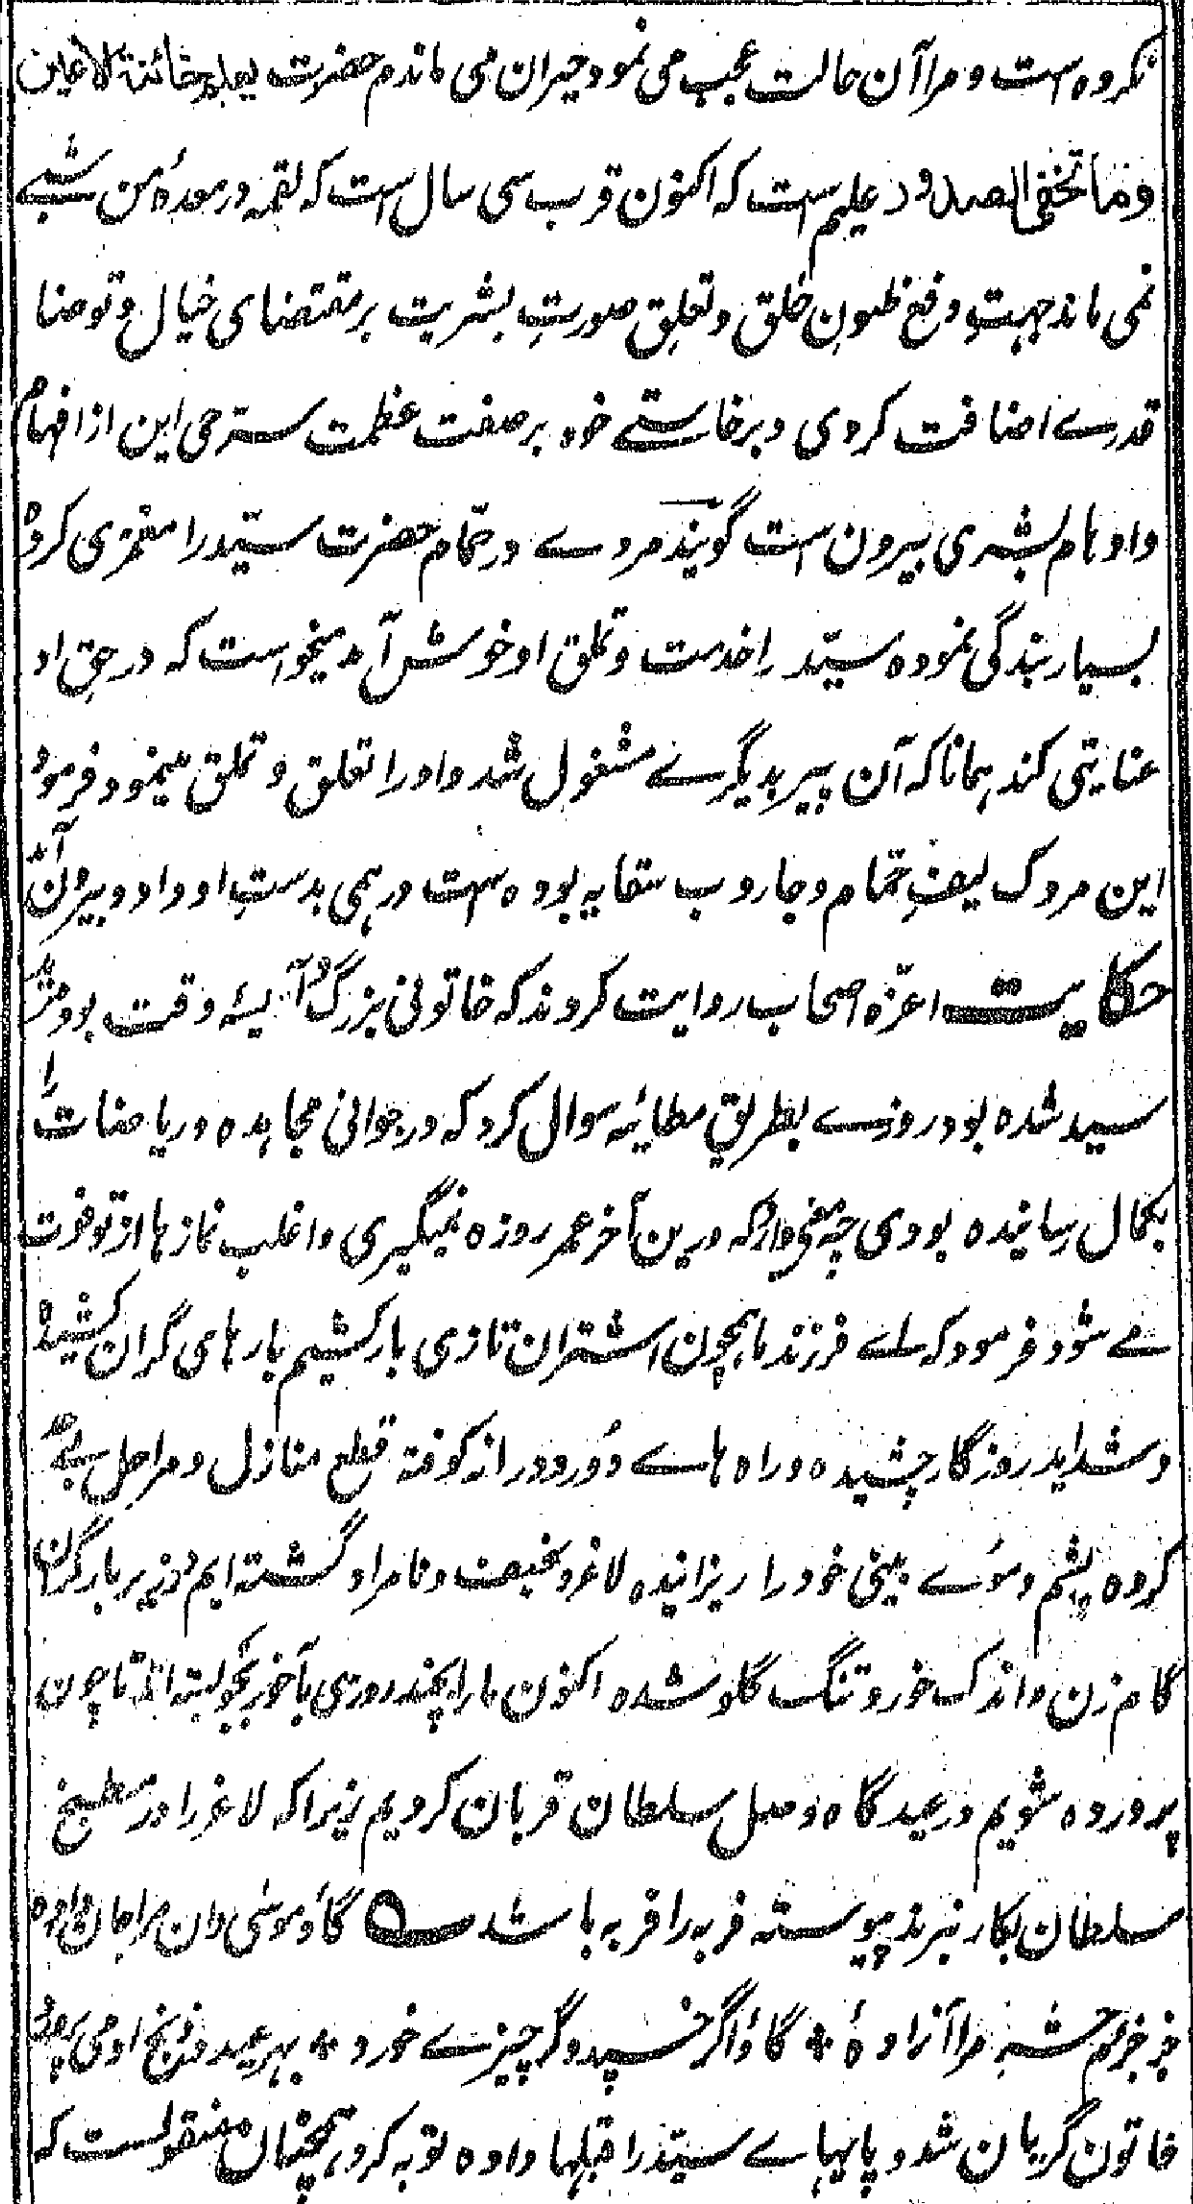 نکرده است و مرا آن حالت عجب می نمود حیران می ماندم حضرت یعلم خائنة الاعین
وما تخفی الصدور علیم است که اکنون قرب سی سال است که لقمه در معدهٔ من شبے
نمی ماند جهتِ دفع ظنونِ خلق و تعلقِ صورتِ بشریت بر مقتضای خیال وتوضا
قدرے اضافت کردی و برخاستے خود بر صفت عظمت ستر حی این از افهام
و اوهام بشری بیرون است گویند مردے در حمّام حضرت سیّد را مغمزی کرده
بسیار بندگی نموده سیّد را خدمت و تملق او خوش آمد میخواست که در حقِ او
عنایتی کند همانا که آن پیر بدیگرے مشغول شد و او را تعلق و تملق مینمود فرمود
این مردک لیفِ حمّام و جاروب سقایه بوده است درهمی بدستِ او داد و بیرون آمد
حکایت اعزّه اصحاب روایت کردند که خاتونی بزرگ و آسیهٔ وقت بود مرید
سید شده بود روزے بطریقِ مطایبه سوال کرد که در جوانی مجاهده و ریاضات را
بکمال رسانیده بودی چه معنی دارد که درین آخر عمر روزه نمیگیری و اغلب نمازها از تو فوت
مے شود فرمود که اے فرزند ما همچون اشتران تازی بارکشیم بارهای گران کشیده
و شداید روزگار چشیده و راه هاے دور و دراز کوفته قطع منازل و مراحل بیحد
کرده پشم و موے هیٔنی خود را ریزانیده لاغر و نحیف و نامراد گشته ایم و زیر بار گران
گام زن و اندک خور و تنگ گلو شده اکنون ما را چند روزی بآخور بجو بسته اند تا چون
پرورده شویم در عیدگاه وصل سلطان قربان گردیم زیرا که لاغر را در مطبخ
سلطان بکار نبرند پیوسته فربه را فربه باشد ؎ گاؤ موسیٰ دان مرا جان داده
جز جزوم حشر هر آزادهٔ * گاؤ اگر خسپد وگر چیزے خورد * بهر عید و ذبح او می پرورد
خاتون گریان شد و پایهاے سیّد را قبلها داده توبه کرد، همچنان منقولست که